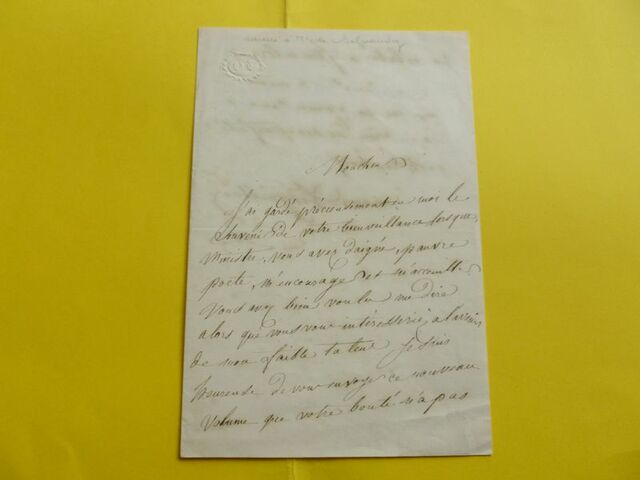 adressé à Mr de Salvandy
Monsieur
J'ai gardé précieusement en moi le
Souvenir de votre bienveillance lorsque,
Ministre, vous avez daigné, pauvre
poète, m'encourager et m'accueillir.
Vous avez bien voulu me dire
alors que vous vous intéressiez à l'avenir
de mon faible talent. Je suis
heureuse de vous envoyer ce nouveau
Volume que votre bonté n'a pas